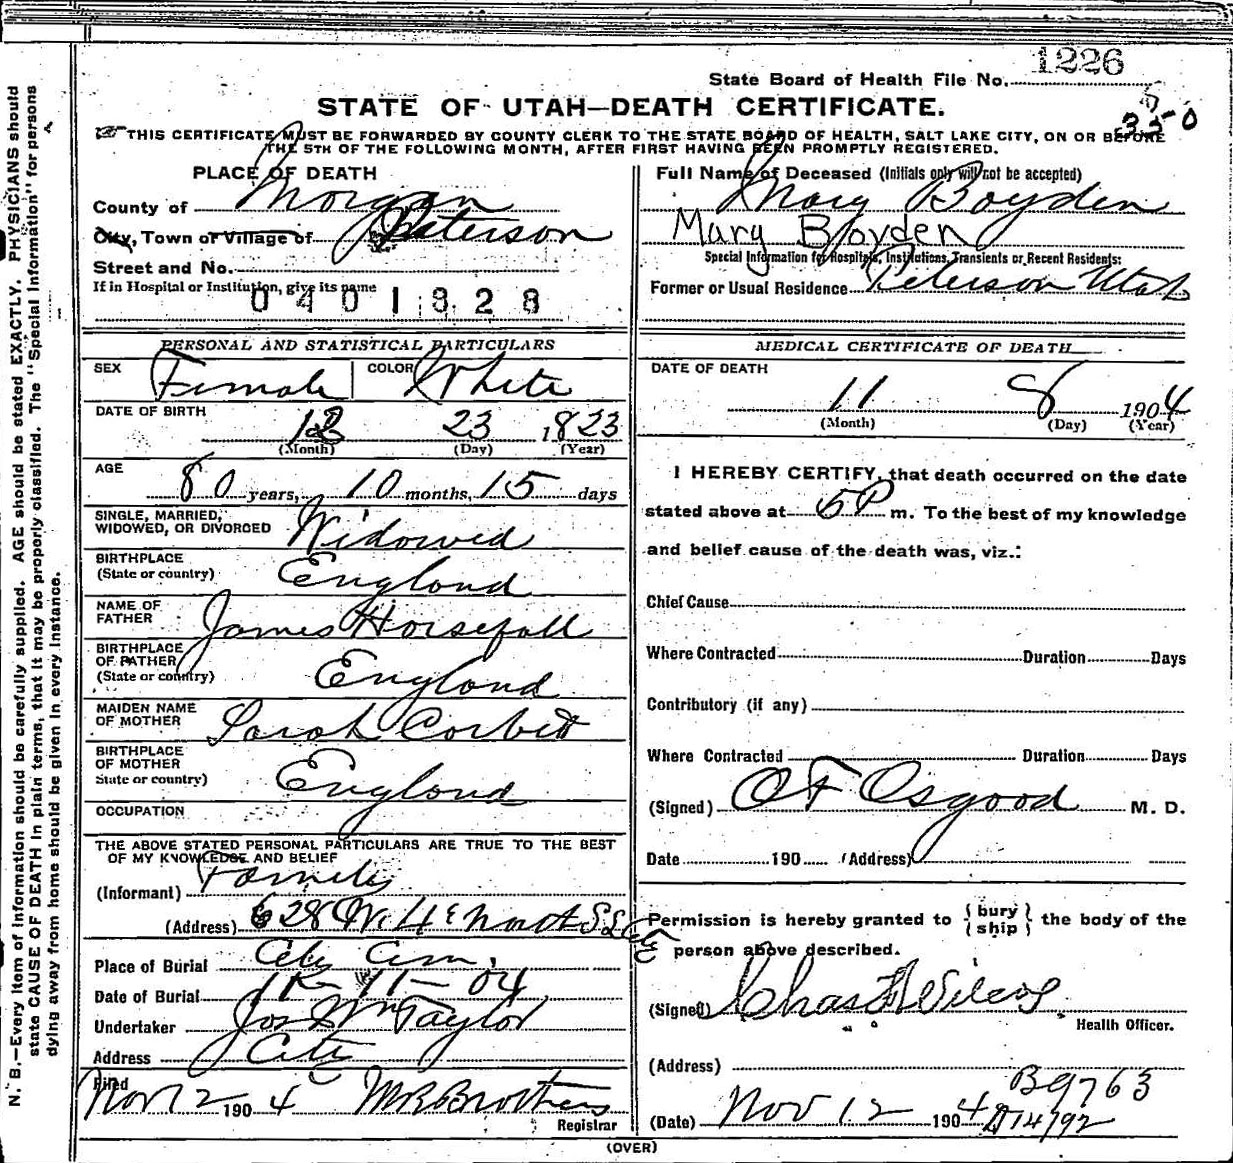 1226
State Board of Health File No.
STATE OF UTAH—DEATH CERTIFICATE.
THIS CERTIFICATE MUST BE FORWARDED BY COUNTY CLERK TO THE STATE BOARD OF HEALTH, SALT LAKE CITY, ON OR BEFORE
THE 5TH OF THE FOLLOWING MONTH, AFTER FIRST HAVING BEEN PROMPTLY REGISTERED.
PLACE OF DEATH
County of Morgan
City, Town or Village of Peterson
Street and No.
If in Hospital or Institution, give its name
0401328
Full Name of Deceased (Initials only will not be accepted)
Mary Boyden
Mary Boyden
Special Information for Hospitals, Institutions, Transients or Recent Residents:
Former or Usual Residence Peterson Utah
PERSONAL AND STATISTICAL PARTICULARS
SEX Female COLOR White
DATE OF BIRTH
12 23 1823
(Month) (Day) (Year)
AGE
80 years, 10 months, 15 days
SINGLE, MARRIED,
WIDOWED, OR DIVORCED Widowed
BIRTHPLACE
(State or country) England
NAME OF
FATHER James Horsefall
BIRTHPLACE
OF FATHER
(State or country) England
MAIDEN NAME
OF MOTHER Sarah Corbett
BIRTHPLACE
OF MOTHER
State or country) England
OCCUPATION
THE ABOVE STATED PERSONAL PARTICULARS ARE TRUE TO THE BEST
OF MY KNOWLEDGE AND BELIEF
(Informant) Family
(Address) 628 W. 4 E North S L City
Place of Burial City Cem.
Date of Burial 11-11-04
Undertaker Jos Wm Taylor
Address City
Filed
Nov 12 190 4 M R Brothers
Registrar
MEDICAL CERTIFICATE OF DEATH
DATE OF DEATH
11 8 1904
(Month) (Day) (Year)
I HEREBY CERTIFY, that death occurred on the date
stated above at 5 P m. To the best of my knowledge
and belief cause of the death was, viz.:
Chief Cause
Where Contracted Duration Days
Contributory (if any)
Where Contracted Duration Days
(Signed) O F Osgood M. D.
Date 190 (Address)
Permission is hereby granted to { bury ship } the body of the
person above described.
(Signed) Chas F Wilcox
Health Officer.
(Address)
B9763
(Date) Nov 12 1904
D14792
(OVER)
N. B.—Every item of information should be carefully supplied. AGE should be stated EXACTLY. PHYSICIANS should
state CAUSE OF DEATH in plain terms, that it may be properly classified. The "Special Information" for persons
dying away from home should be given in every instance.